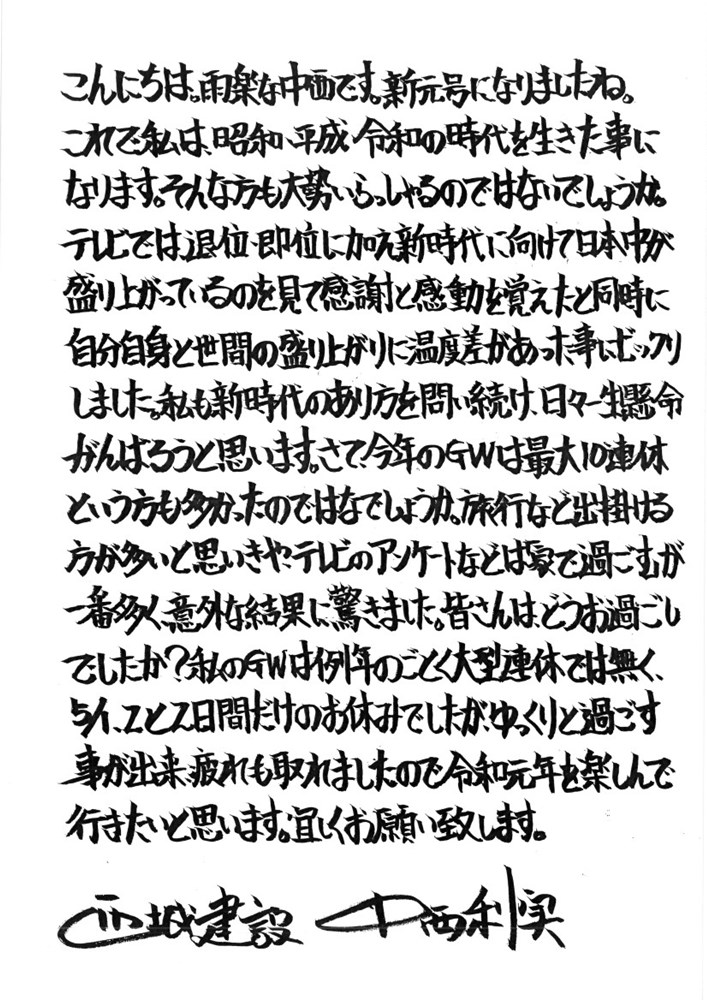 こんにちは。雨楽な中西です。新元号になりましたね。
これで私は、昭和、平成、令和の時代を生きた事に
なります。そんな方も大勢いらっしゃるのではないでしょうか。
テレビでは退位・即位に加え新時代に向けて日本中が
盛り上がっているのを見て感謝と感動を覚えたと同時に
自分自身と世間の盛り上がりに温度差があった事にビックリ
しました。私も新時代のあり方を問い続け、日々一生懸命
がんばろうと思います。さて、今年のGWは最大10連休
という方も多かったのではなでしょうか。旅行など出掛ける
方が多いと思いきや、テレビのアンケートなどは家で過ごすが
一番多く、意外な結果に驚きました。皆さんはどうお過ごし
でしたか？私のGWは例年のごとく大型連休では無く、
5/1、2と2日間だけのお休みでしたが、ゆっくりと過ごす
事が出来、疲れも取れましたので令和元年を楽しんで
行きたいと思います。宜しくお願い致します。
建設 中西利実